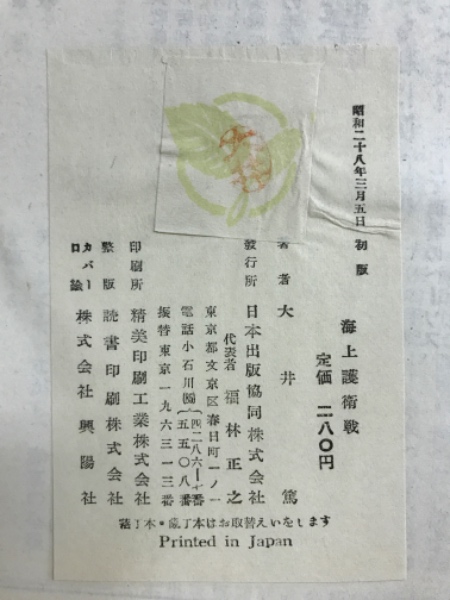 昭和二十八年三月五日 初版
海上護衛戰
定価 二八〇円
著者 大井篤
發行所 日本出版協同株式会社
代表者 福林正之
東京都文京区春日町一ノ一
電話小石川(85){四二八六―七番
五五〇八番
振替東京一九六三一三番
印刷所 精美印刷工業株式会社
整版 読書印刷株式会社
カバー
口絵 株式会社興陽社
落丁本・乱丁本はお取替えいたします
Printed in Japan